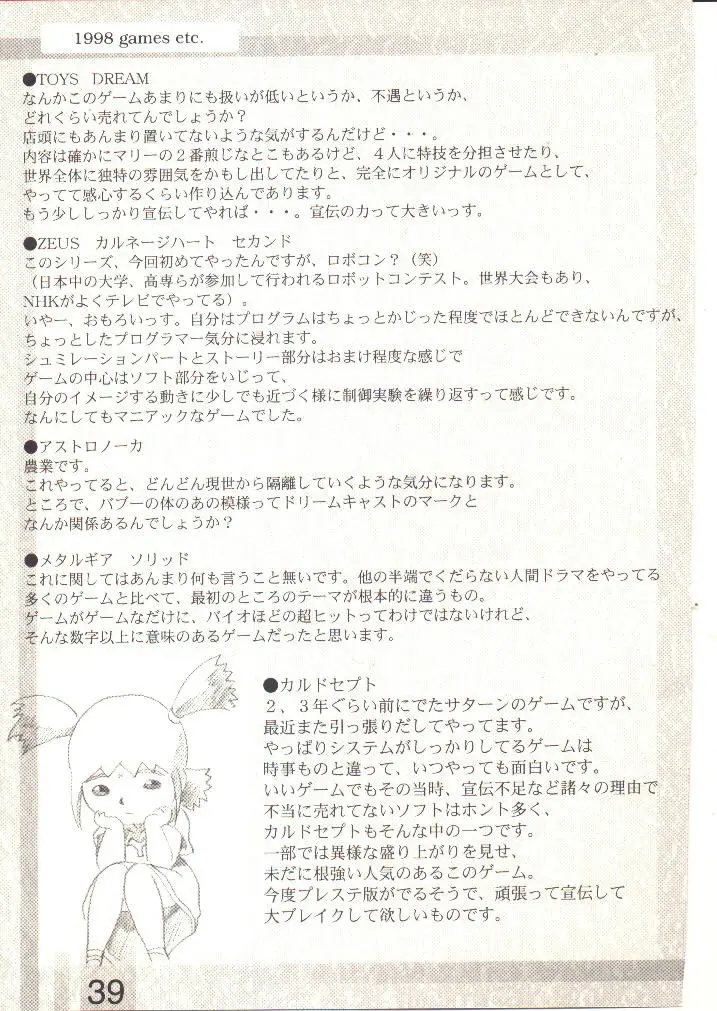 1998 games etc.
●TOYS　DREAM
なんかこのゲームあまりにも扱いが低いというか、不遇というか、
どれくらい売れてんでしょうか？
店頭にもあんまり置いてないような気がするんだけど・・・。
内容は確かにマリーの２番煎じなとこもあるけど、４人に特技を分担させたり、
世界全体に独特の雰囲気をかもし出してたりと、完全にオリジナルのゲームとして、
やってて感心するくらい作り込んであります。
もう少ししっかり宣伝してやれば・・・。宣伝の力って大きいっす。
●ZEUS　カルネージハート　セカンド
このシリーズ、今回初めてやったんですが、ロボコン？（笑）
（日本中の大学、高専らが参加して行われるロボットコンテスト。世界大会もあり、
NHKがよくテレビでやってる）。
いやー、おもろいっす。自分はプログラムはちょっとかじった程度でほとんどできないんですが、
ちょっとしたプログラマー気分に浸れます。
シュミレーションパートとストーリー部分はおまけ程度な感じで
ゲームの中心はソフト部分をいじって、
自分のイメージする動きに少しでも近づく様に制御実験を繰り返すって感じです。
なんにしてもマニアックなゲームでした。
●アストロノーカ
農業です。
これやってると、どんどん現世から隔離していくような気分になります。
ところで、バブーの体のあの模様ってドリームキャストのマークと
なんか関係あるんでしょうか？
●メタルギア　ソリッド
これに関してはあんまり何も言うこと無いです。他の半端でくだらない人間ドラマをやってる
多くのゲームと比べて、最初のところのテーマが根本的に違うもの。
ゲームがゲームなだけに、バイオほどの超ヒットってわけではないけれど、
そんな数字以上に意味のあるゲームだったと思います。
●カルドセプト
２、３年ぐらい前にでたサターンのゲームですが、
最近また引っ張りだしてやってます。
やっぱりシステムがしっかりしてるゲームは
時事ものと違って、いつやっても面白いです。
いいゲームでもその当時、宣伝不足など諸々の理由で
不当に売れてないソフトはホント多く、
カルドセプトもそんな中の一つです。
一部では異様な盛り上がりを見せ、
未だに根強い人気のあるこのゲーム。
今度プレステ版がでるそうで、頑張って宣伝して
大ブレイクして欲しいものです。
39